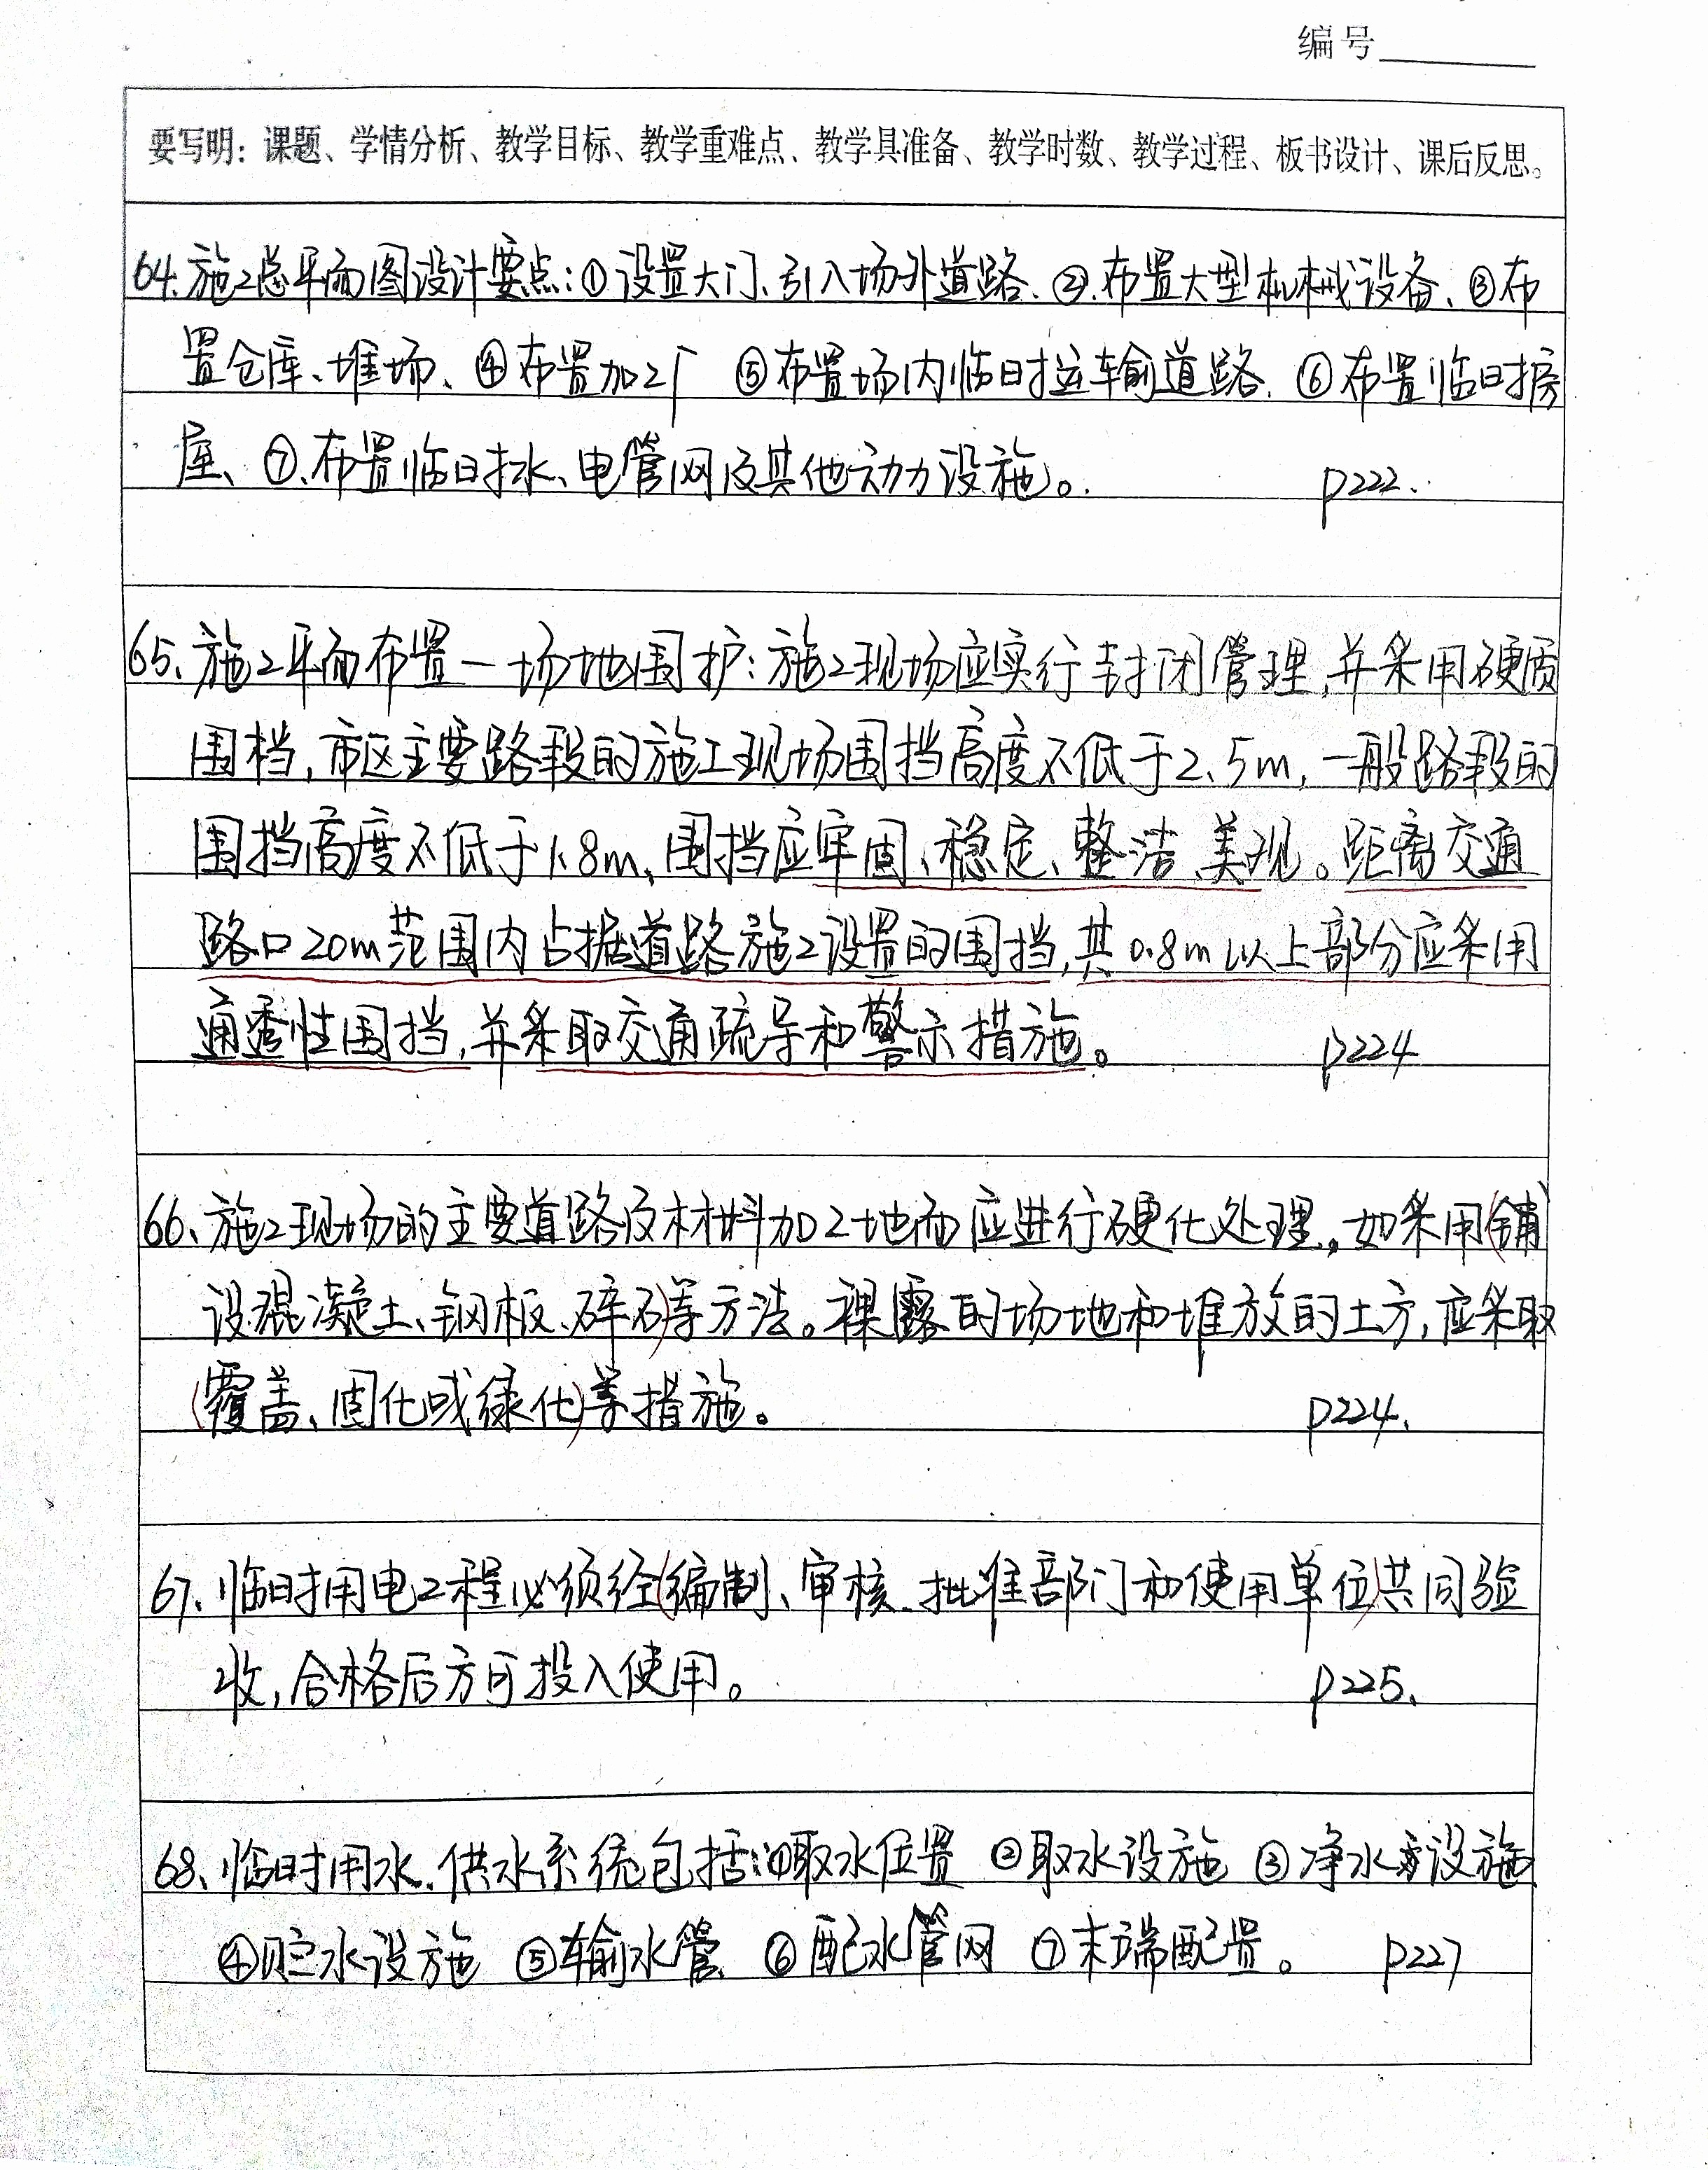 编号
要写明：课题、学情分析、教学目标、教学重难点、教学具准备、教学时数、教学过程、板书设计、课后反思。
64.施工总平面图设计要点:①设置大门、引入场外道路、②.布置大型机械设备、③布
置仓库、堆场、④布置加工厂 ⑤布置场内临时运输道路. ⑥布置临时房
屋、⑦.布置临时水、电管网及其他动力设施。 P222.
65、施工平面布置一场地围护:施工现场应实行封闭管理,并采用硬质
围档,市区主要路段的施工现场围挡高度不低于2.5m,一般路段的
围挡高度不低于1.8m,围挡应牢固、稳定、整洁、美观。距离交通
路口20m范围内占据道路施工设置的围挡,其0.8m以上部分应采用
通透性围挡,并采取交通疏导和警示措施。 P224
66、施工现场的主要道路及材料加工地面应进行硬化处理,如采用(铺
设混凝土、钢板、碎石)等方法。裸露的场地和堆放的土方,应采取
(覆盖、固化或绿化)等措施。 P224.
67、临时用电工程必须经(编制、审核、批准部门和使用单位)共同验
收,合格后方可投入使用。 P225、
68、临时用水.供水系统包括:①取水位置 ②取水设施 ③净水设施
④贮水设施 ⑤输水管 ⑥配水管网 ⑦末端配置。 P227